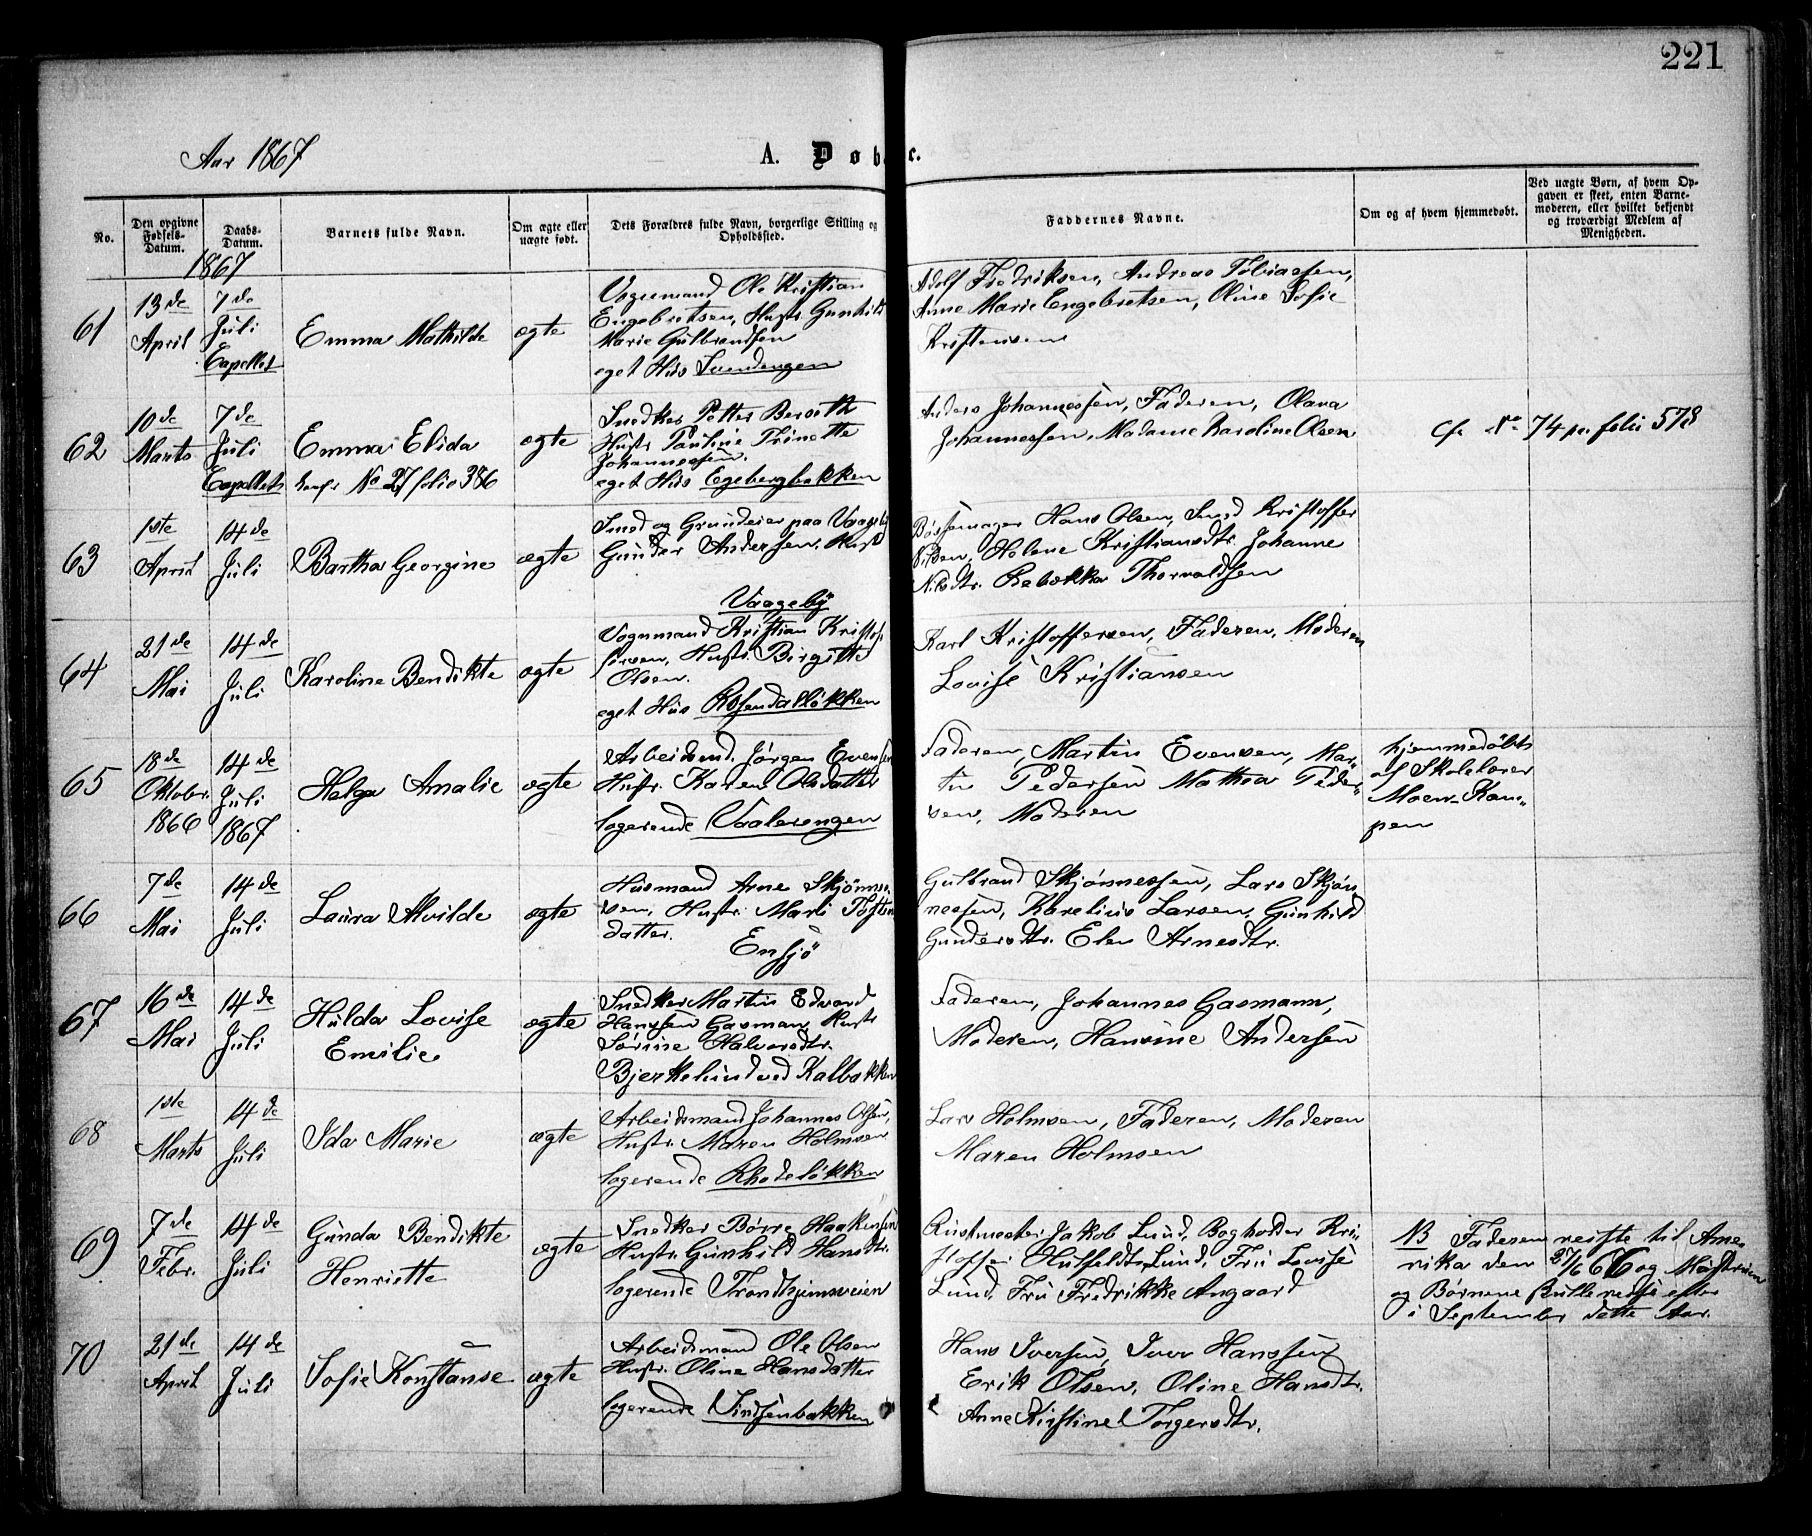 221
Aar 1867
A. Døbte.
No.
Den opgivne Fødsels-Datum.
Daabs-Datum.
Barnets fulde Navn.
Om ægte eller uægte født.
Dets Forældres fulde Navn, borgerlige Stilling og Opholdssted.
Faddernes Navne.
Om og af hvem hjemmedøbt.
Ved uægte Børn, af hvem Opgaven er skeet, enten Barnemoderen, eller hvilket bekjendt og troværdigt Medlem af Menigheden.
1867
61
13de April
7de Juli Capellet
Emma Mathilde
ægte
Vognmand Ole Kristian
Engebretsen, Hustr. Gunhild
Marie Gulbrandsen
eget Hus Svendengen
Adolf Fredriksen, Andreas Tobiassen,
Anne Marie Engebretsen, Oline Sofie
Kristensen
62
10de Marts
7de Juli Capellet
Emma Elida
No 27 folio 386
ægte
Snedker Petter
Hustr. Pauline Trinette
Johannessen.
eget Hus Egebergbakken
Anders Johannessen, Faderen, Olava
Johannessen, Madame Karoline Olsen
Cfr No 74 pa folio 578
63
1ste April
14de Juli
Bartha Georgine
ægte
Smed og Grundeier paa Vaageby
Gunder Andersen. Hustr
Vaageby
Bøssemager Hans Olsen, Smed Kristoffer
Nilsen, Helene Kristiansdtr. Johanne
Nilsdtr. Rebekka Thorvaldsen
64
21de Mai
14de Juli
Karoline Bendikte
ægte
Vognmand Kristian Kristof-
fersen, Hustr. Birgitte
Olsen.
eget Hus Rosendalløkken
Karl Kristoffersen, Faderen, Moderen
Lovise Kristiansen
65
18de Oktobr. 1866
14de Juli 1867
Helga Amalie
ægte
Arbeidsmd. Jørgen Evensen
Hustr. Karen Olsdatter
logerende Vaalerengen
Faderen, Martin Evensen, Mar-
tin Pedersen Mathea Peder-
sen, Moderen
hjemmedøbt
af Skolelærer
Moen- Kam-
pen
66
7de Mai
14de Juli
Laura Alvilde
ægte
Husmand Arne Skjønnes-
sen, Hustr. Marli Tosten
datter.
Ensjø
Gulbrand Skjønnessen, Lars Skjøn
nessen, Karelius Larsen, Gunhild
Gundersdtr. Elen Arnesdtr.
67
16de Mai
14de Juli
Hulda Lovise
Emilie
ægte
Snedker Martin Edvard
Hanssen Gasman, Hustr
Sørine Halvorsdtr.
Bjerkelund ved Kalbakken
Faderen, Johannes Gasmann,
Moderen, Hansine Andersen
68
1ste Marts
14de Juli
Ida Marie
ægte
Arbeidsmand Johannes Olsen,
Hustr. Maren Holmsen
logerende Rhodeløkken
Lars Holmsen, Faderen, Moderen
Maren Holmsen
69
7de Febr.
14de Juli
Gunda Bendikte
Henriette
ægte
Snedker Børre Haakensen
Hustr. Gunhild Hansdtr.
logerende Trondhjemsveien
Rustmester Jakob Lund, Bogholder Kri-
stoffer Hulfeldt Lund, Fru Lovise
Lund, Fru Fredrikke Aagaard
NB Faderen reiste til Ame-
rika den 27/6 66 og
og Børnene reise efter
i September dette Aar.
70
21de April
14de Juli
Sofie Konstanse
ægte
Arbeidsmand Ole Olsen
Hustr. Oline Hansdatter
logerende Vindsenbakken
Hans Iversen, Iver Hanssen
Erik Olsen, Oline Hansdtr.
Anne Kirstine Torgersdtr.